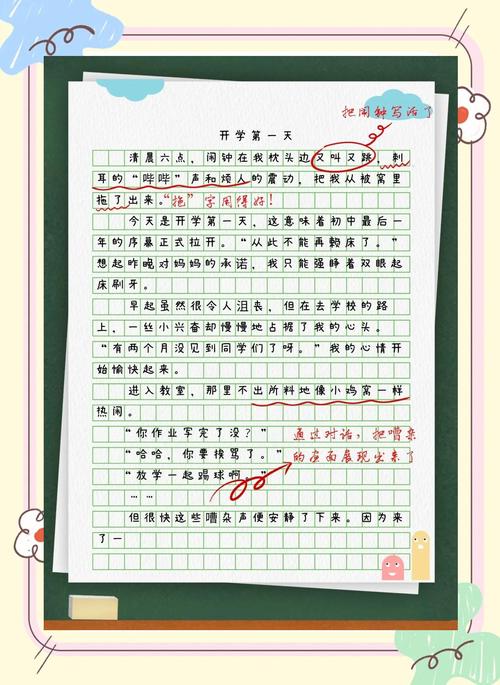 把闹钟写活了
开学第一天
清晨六点，闹钟在我枕头边又叫又跳，刺
耳的“哔哔”声和烦人的震动，把我从被窝里
拖了出来。“拖”字用得好！
今天是开学第一天，这意味着初中最后一
年的序幕正式拉开。“从此不能再赖床了。”
想起昨晚对妈妈的承诺，我只能强睁着双眼起
床刷牙。
早起虽然很令人沮丧，但在去学校的路
上，一丝小兴奋却慢慢地占据了我的心头。
“有两个月没见到同学们了呀。”我的心情开
始愉快起来。
进入教室，那里不出所料地像小鸡窝一样
热闹。
“你作业写完了没？”
通过对话，把嘈杂
“哈哈，你要挨骂了。”
的画面展现出来了
“放学一起踢球啊。”
……
但很快这些嘈杂声便安静了下来。因为来
了一